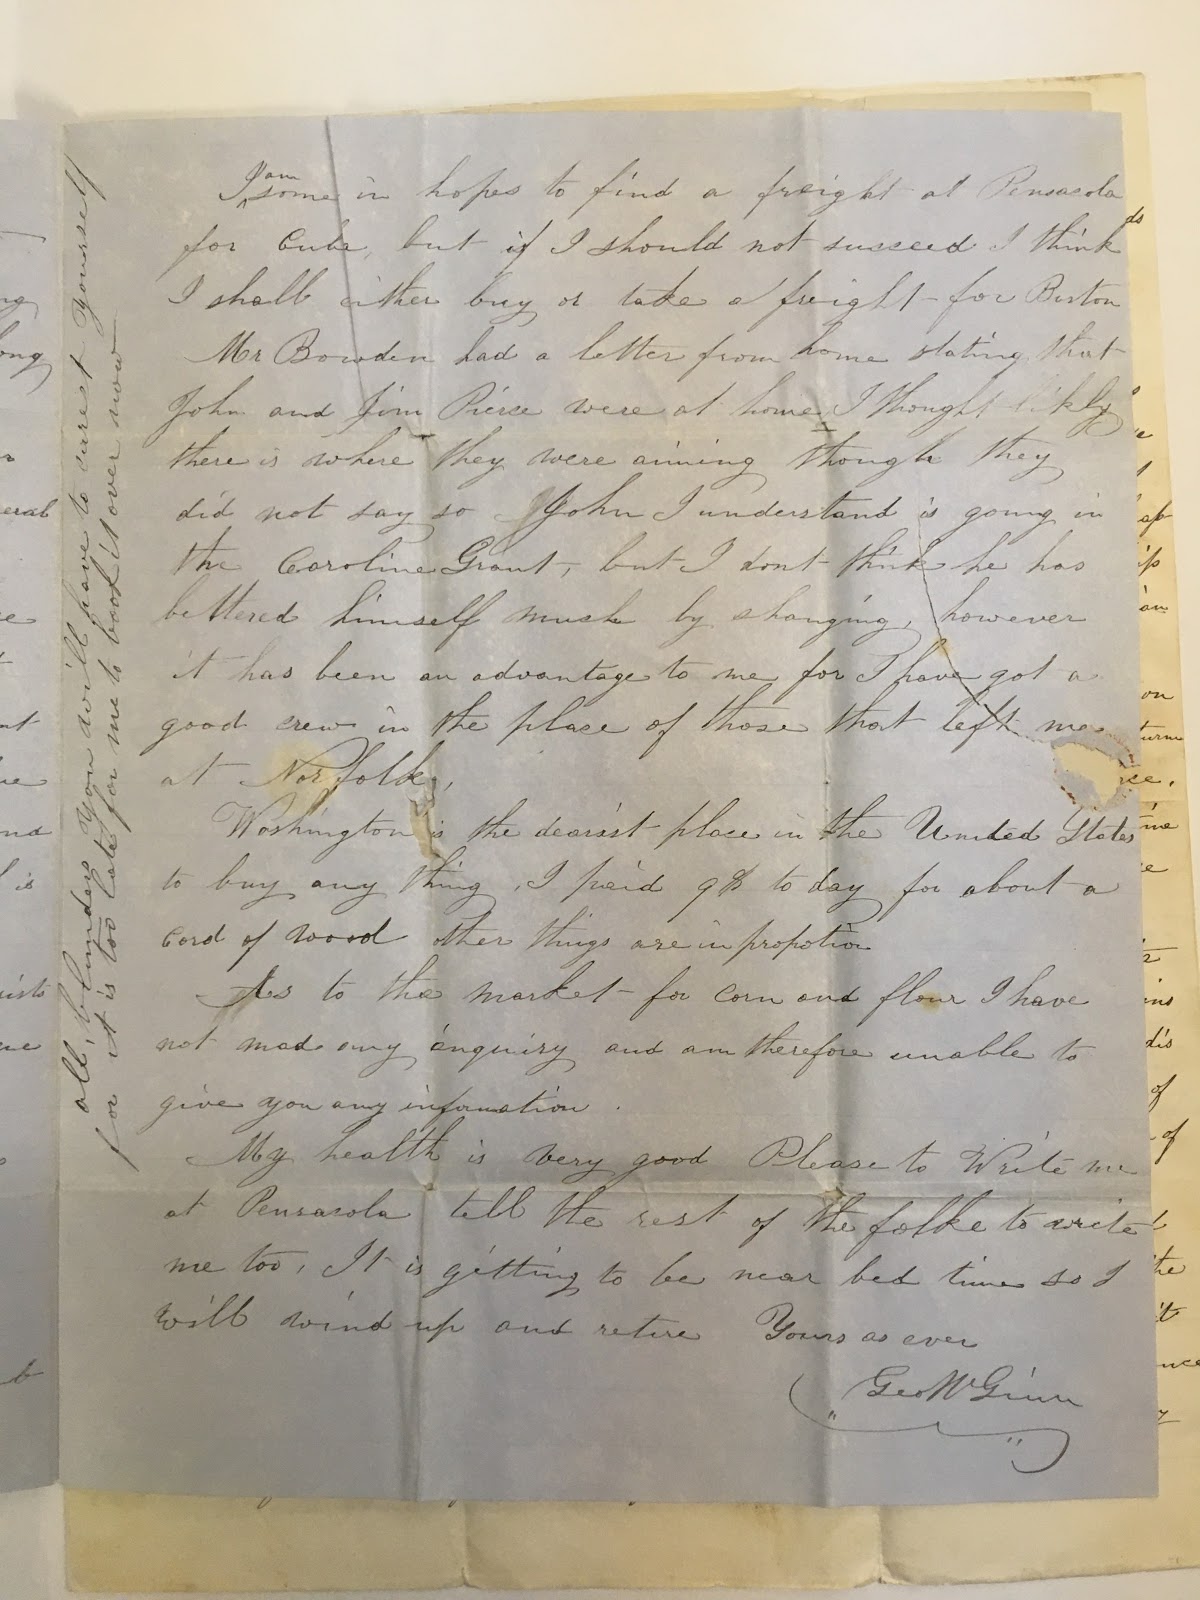 I am some in hopes to find a freight at Pensacola
for Cuba, but if I should not succeed I think
I shall either buy or take a freight for Boston
Mr Bowden had a letter from home stating that
John and Jim Pierce were at home, I thought likly
there is where they were aiming though they
did not say so John I understand is going in
the Caroline Grant, but I dont think he has
bettered himself much by changing, however
it has been an advantage to me for I have got a
good crew in the place of those that left me
at Norfolk,
Washington is the dearist place in the United States
to buy any thing, I paid 9$ to day for about a
cord of wood other things are in propotion
As to the market for corn and flour I have
not mad any enquiry and am therefore unable to
give you any information.
My health is very good Please to Write me
at Pensacola tell the rest of the folke to write
me too, It is getting to be near bed time so I
will wind up and retire Yours as ever
Geo W Ginn
all, blunders You will have to corect yourself
for it is too late for me to look it over now